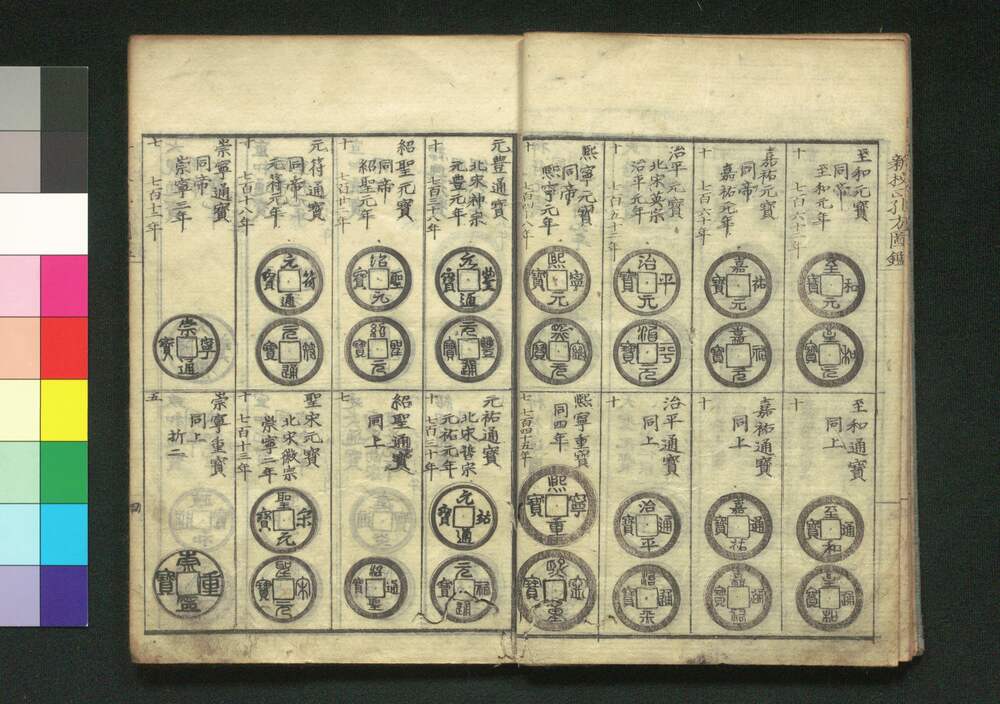 新挍正孔方圖鑑
至和元寶
同帝
至和元年
七百六十三年
十
至和元寶
至和元寶
嘉祐元寶
同帝
嘉祐元年
七百六十年
十
嘉祐元寶
嘉祐元寶
治平元寶
北宋英宗
治平元年
七百五十三年
十
治平元寶
治平元寶
熙寧元寶
同帝
熙寧元年
七百四十八年
十
熙寧元寶
熙寧元寶
至和通寶
同上
十
至和通寶
至和通寶
嘉祐通寶
同上
十
嘉祐通寶
嘉祐通寶
治平通寶
同上
十
治平通寶
治平通寶
熙寧重寶
同四年
七百四十五年
七
熙寧重寶
熙寧重寶
元豊通寶
北宋神宗
元豊元年
七百三十八年
十
元豐通寶
元豐通寶
紹聖元寶
同帝
紹聖元年
七百廿二年
十
紹聖元寶
紹聖元寶
元符通寶
同帝
元符元年
七百十八年
十
元符通寶
元符通寶
崇寧通寶
同帝
崇寧二年
七百十三年
七
崇寧通寶
元祐通寶
北宋哲宗
元祐元年
七百三十年
十
元祐通寶
元祐通寶
紹聖通寶
同上
七
紹聖通寶
聖宋元寶
北宋徽宗
崇寧二年
七百十三年
十
聖宋元寶
聖宋元寶
崇寧重寶
同上
折二
五
崇寧重寶
四